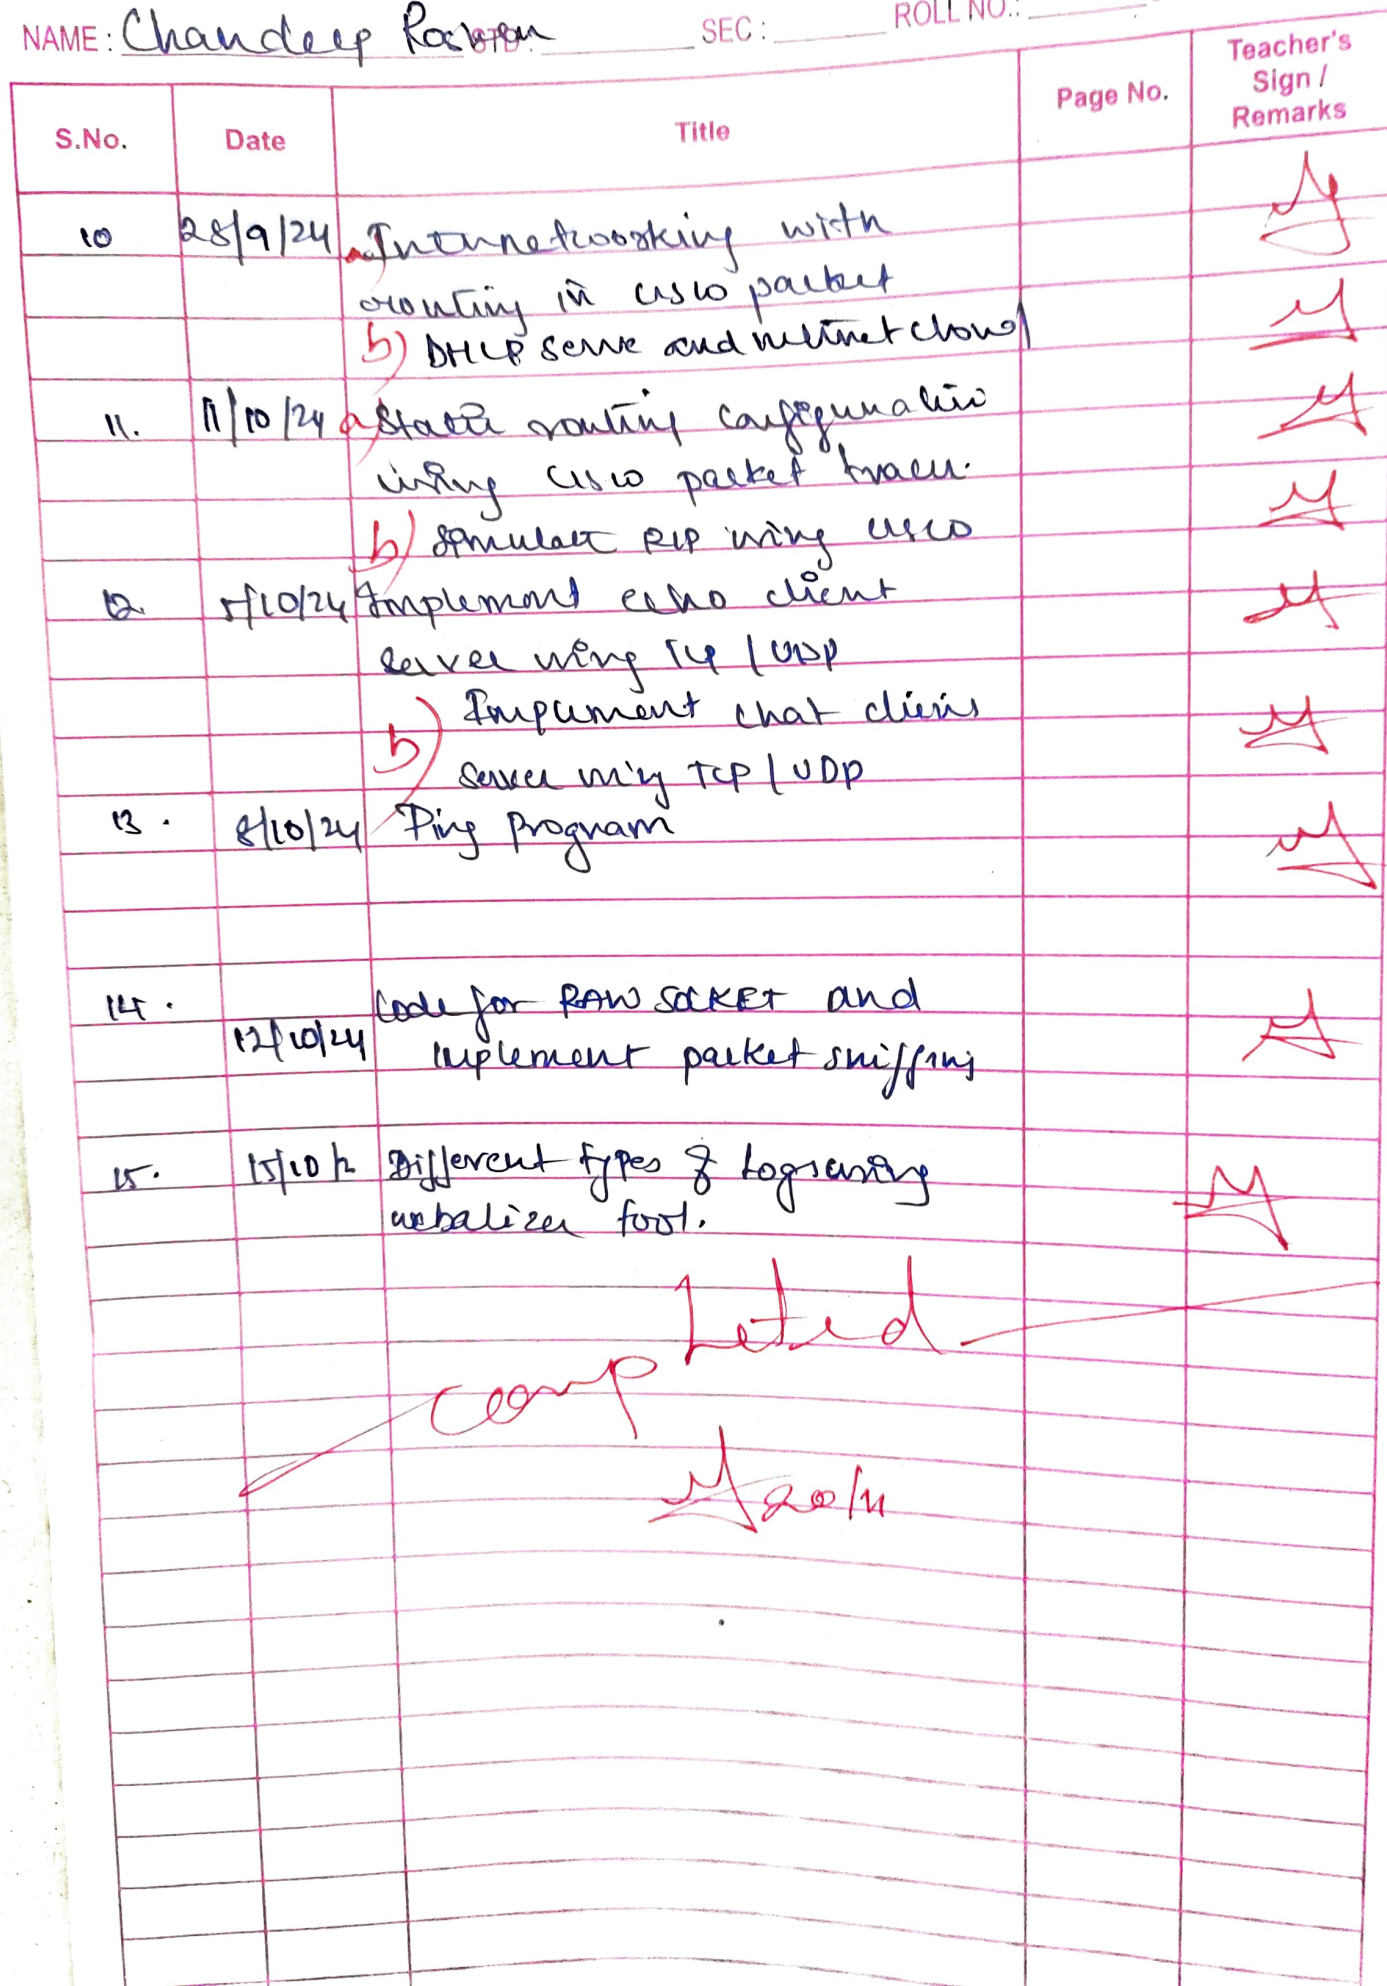 NAME: Chandeep STD: SEC: ROLL NO.:
S.No. Date Title Page No. Teacher's Sign / Remarks
10 28/9/24 a) Internetworking with
routing in cisco packet
b) DHCP serve and
11. 11/10/24 a) Static routing configuration
using cisco packet tracer.
b) Simulate RIP using cisco
12. 5/10/24 Implement echo client
server using TCP / UDP
b) Implement chat client
server using TCP / UDP
13. 8/10/24 Ping Program
14. Code for RAW SOCKET and
12/10/24 implement packet sniffing
15. 15/10/2 Different types of
webalizer tool.
Completed
20/11